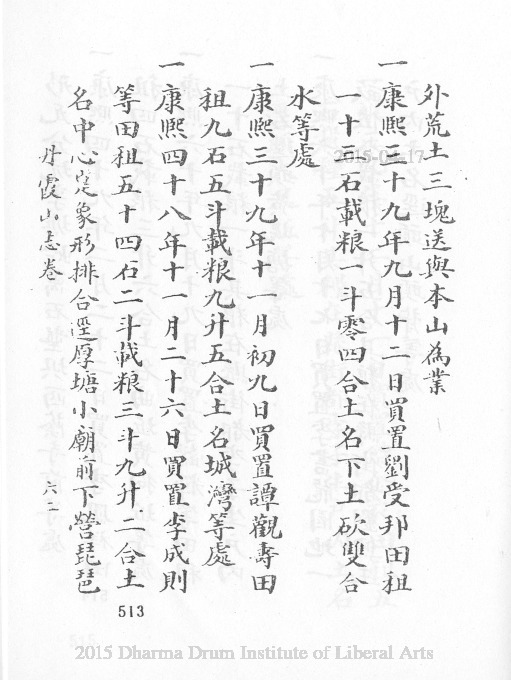 外荒土三塊送與本山為業
一康熙三十九年九月十二日買置劉受邦田租
一十三石載粮一斗零四合土名下土砍雙合
水等處
一康熙三十九年十一月初九日買置譚觀壽田
租九石五斗載粮九升五合土名城灣等處
一康熙四十八年十一月二十六日買置李成則
等田租五十四石二斗載粮三斗九升二合土
名中心定象形排合逕厚塘小廟前下營琵琶
丹霞山志卷 六 六二
513
2015-04-17
2015 Dharma Drum Institute of Liberal Arts